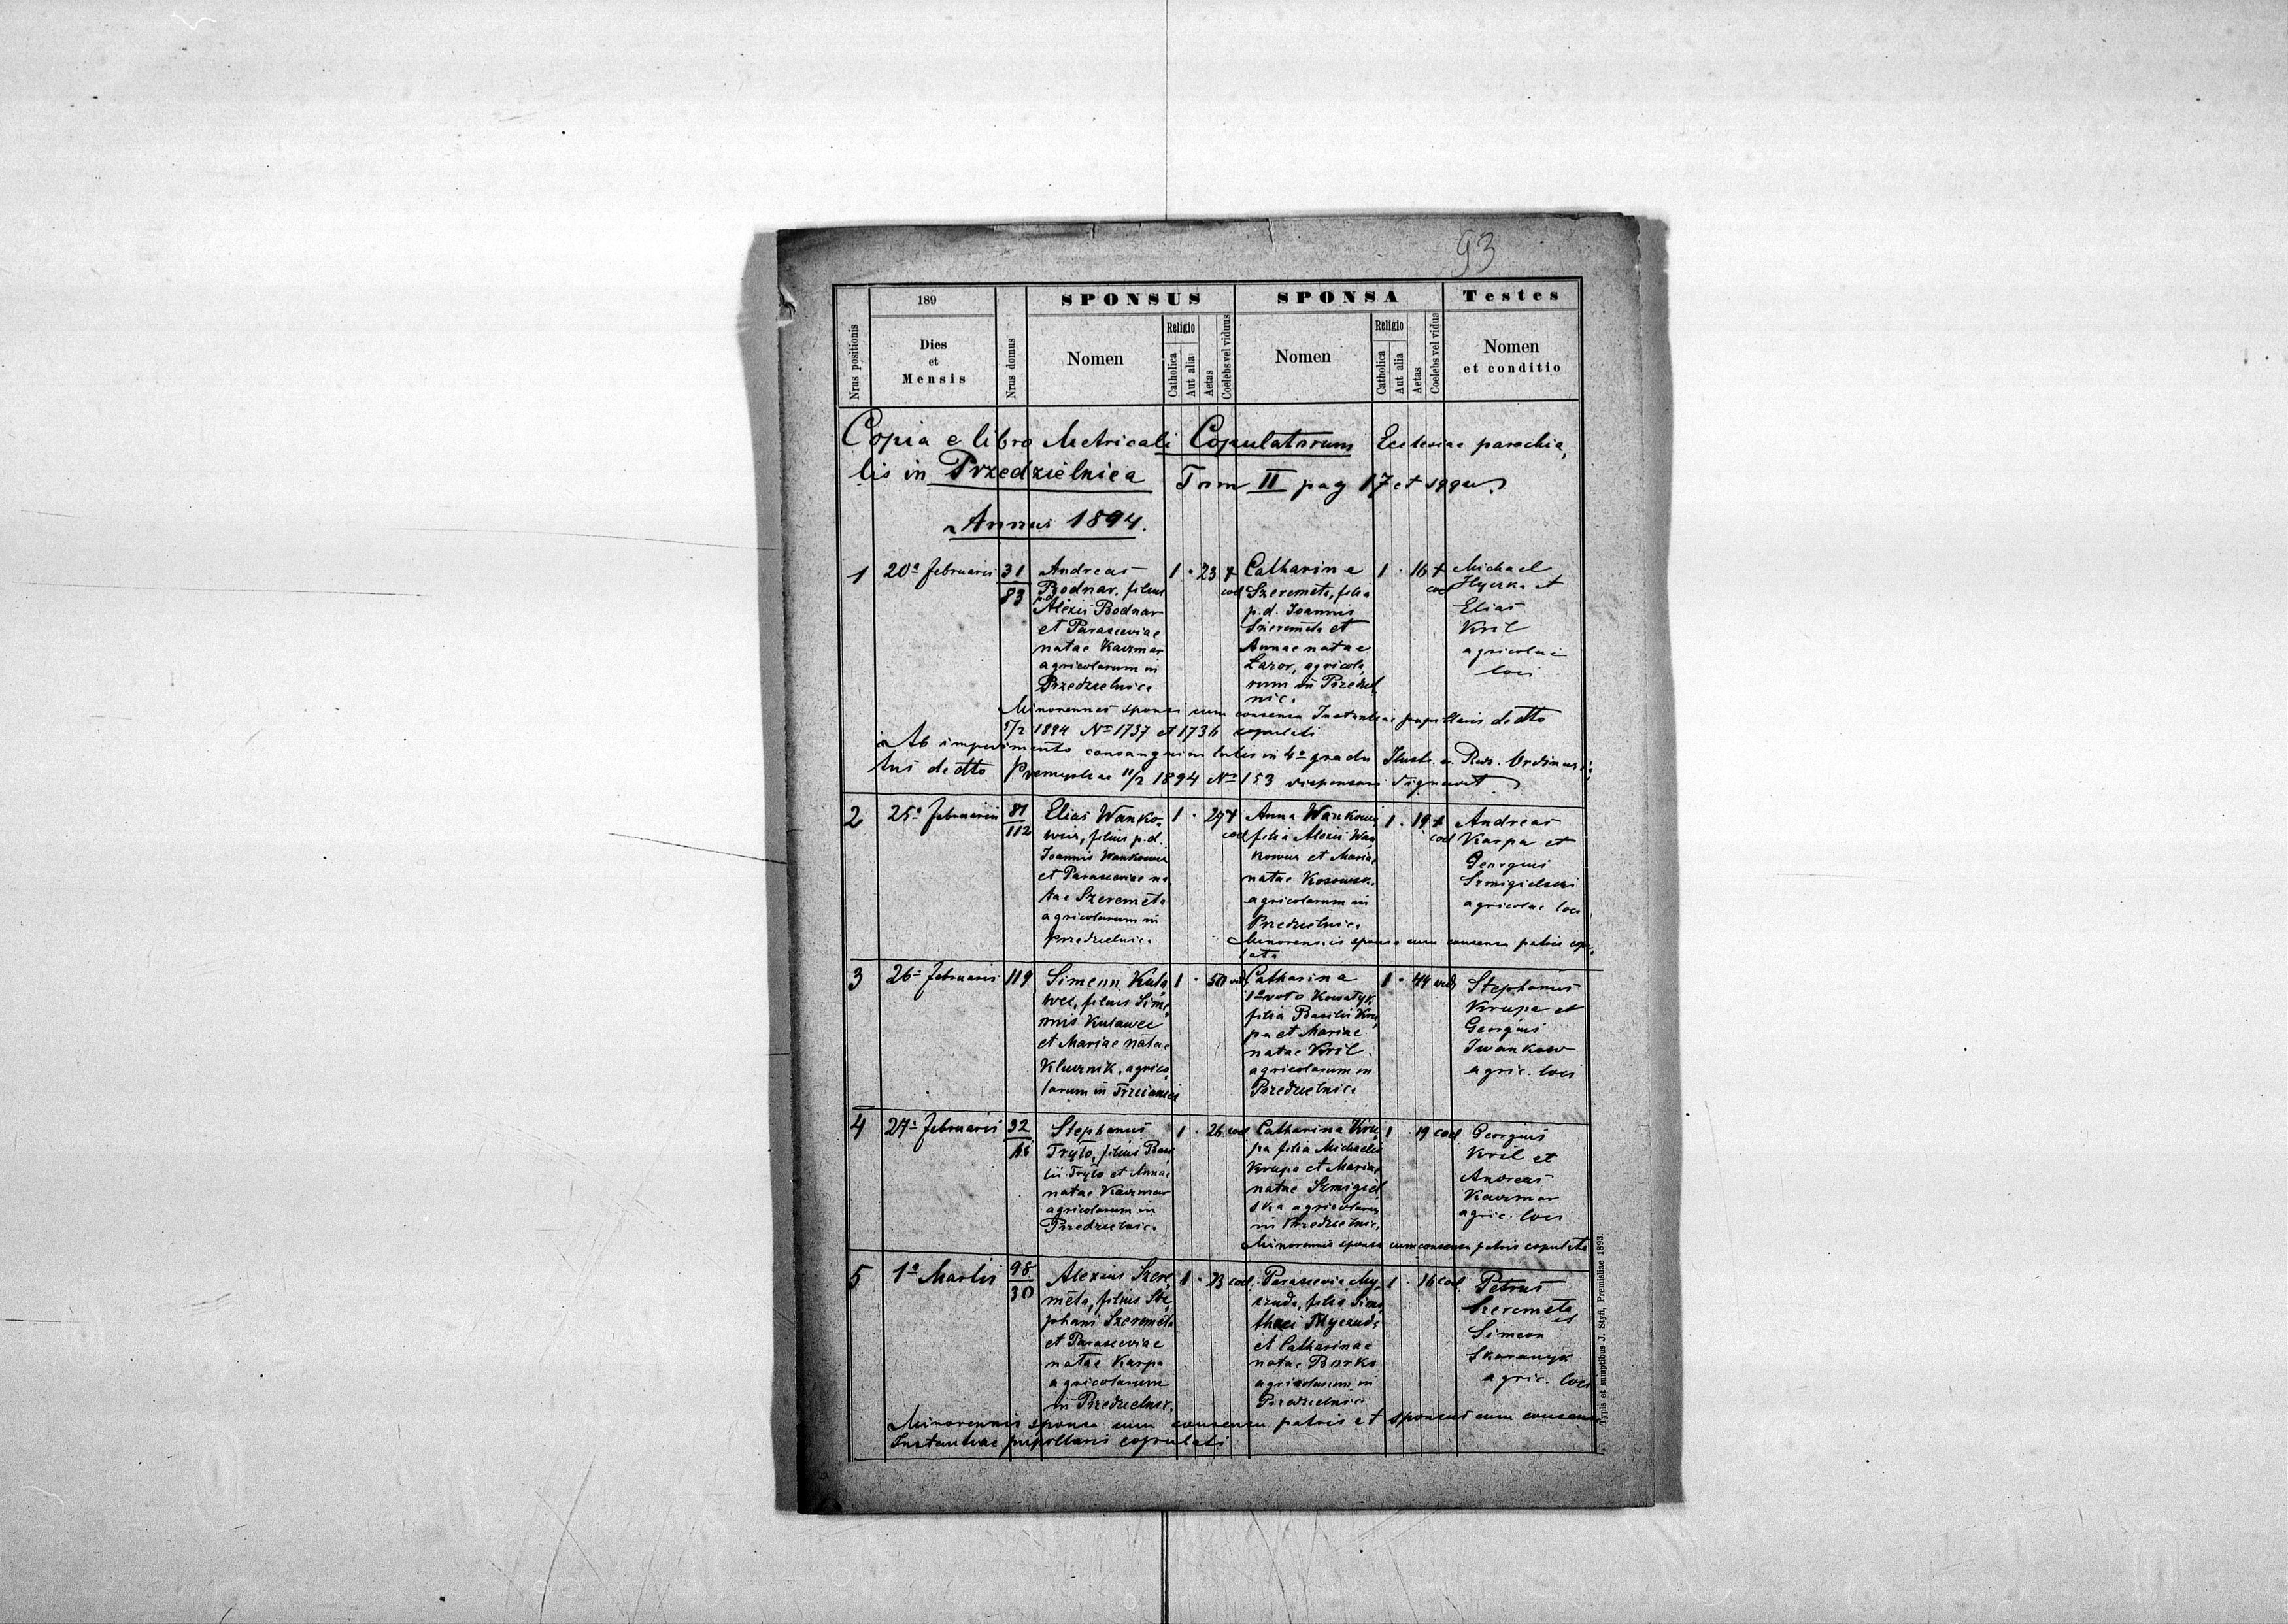 93
189
SPONSUS
SPONSA
Testes
Nrus positionis
Dies
et
Mensis
Nrus domus
Nomen
Religio
Catholica
Aut alia
Aetas
Coelebs vel viduus
Nomen
Religio
Catholica
Aut alia
Aetas
Coelebs vel vidua
Nomen
et conditio
Copia e libro Metricali Copulatorum Ecclesiae parochia,
lis in Przedzielnica Tom II pag 17 et sqqu
Annus 1894.
1
20ª februarii
31
83
Andreas
Bodnar, filius
p.d.
Alexii Bodnar
et Parasceviae
natae Kaczmar
agricolarum in
Przedzielnica
1 · 23
coel
Catharina
Szeremeta, filia
p.d. Joannis
Szeremeta et
Annae natae
Lazor, agricola,
rum in Przedziel
nica
1 · 16
coel
Michael
et
Elias
Kril
agricolae
loci
Minorennes sponsi cum consensu Instantiae pupillaris de dtto
5/2 1894 Nº 1737 et 1736 copulati
Ab impedimento consanguini tatis in 4º gradu Illustr. ac Rvds. Ordinaria,
tus de dtto Premysliae 11/2 1894 Nº 153 dispensare dignavit
2
25ª februarii
81
112
Elias Wanko,
wicz, filius p.d.
Joannis Wankowicz
et Parasceviae na
tae Szeremeta
agricolarum in
Przedzielnica
1 · 27
coel
Anna Wankowicz
filia Alexii Wan
kowicz et Mariae
natae
agricolarum in
Przedzielnica
1 · 19
coel
Andreas
Karpa et
Georgius
Szmigielski
agricolae loci
Minorennis sponsa cum consensu patris copu,
lata
3
26ª februarii
119
Simeon Kula
wec, filius Sime,
onis Kulawec
et Mariae natae
Klucznik, agrico,
larum in
1 · 50 vid
Catharina
1º voto
filia Basilii Kru,
pa et Mariae
natae Kril
agricolarum in
Przedzielnica
1 · 44 vid
Stephanus
Krupa et
Georgius
Iwankow
agric. loci
4
27ª februarii
32
Stephanus
Tryło, filius Basi,
lii Tryło et Annae
natae Kaczmar
agricolarum in
Przedzielnica
1 · 26 coel
Catharina Kru,
pa filia Michaelis
Krupa et Mariae
natae Szmigiel
ska agricolarum
in Przedzielnica
1 · 19 coel
Georgius
Kril et
Andreas
Kaczmar
agric. loci
Minorennis sponsa cum consensu patris copulata
5
1ª Martii
98
30
Alexius Szere,
meta, filius Ste,
phani Szeremeta
et Parasceviae
natae Karpa
agricolarum
in Przedzielnic.
1 · 23 coel.
Parascevia My,
czuda, filia Timo,
thaei Myczuda
et Catharinae
natae Borko
agricolarum in
Przedzielnica
1 · 16 coel
Petrus
Szeremeta
et
Simeon
Skoranyk
agric. loci
Minorennis sponsa cum consensu patris et sponsus cum consensu
Instantiae pupillaris copulati
Typis et sumptibus J. Styfi, Premisliae 1893.